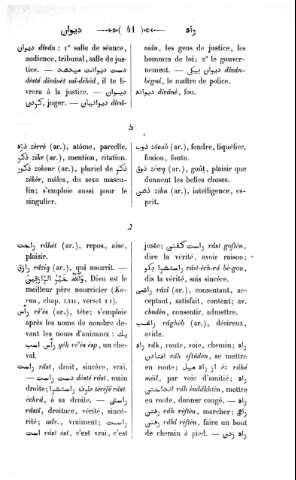 ديوان
41
راه
ديوان dîvân : 1° salle de séance,
audience, tribunal, salle de jus-
tice. — دست ديوانت ميدهد
desté dîvânèt mî-déhèd, il te li-
vrera à la justice. — ديوان
كردن, juger. — ديوانيان dîvâ-
niân, les gens de justice, les
hommes de loi; 2° le gouver-
nement. — ديوان بيگى dîvân-
bégui, le maître de police.
ديوانه dîvânè, fou.
ذ
ذرّه zèrrè (ar.), atome, parcelle.
ذكر zikr (ar.), mention, citation.
ذكور zokour (ar.), pluriel de ذكر
zèkèr, mâles, du sexe mascu-
lin; s'emploie aussi pour le
singulier.
ذوب zôoub (ar.), fondre, liquéfier,
fusion, fonte.
ذوق zôouq (ar.), goût, plaisir que
donnent les belles choses.
ذهن zihn (ar.), intelligence, es-
prit.
ر
راحت râhèt (ar.), repos, aise,
plaisir.
رازق râziq (ar.), qui nourrit. —
وَاللّٰهُ خَيْرُ الرَّازِقِينَ, Dieu est le
meilleur père nourricier (Ko-
ran, chap. LXII, verset 11).
رأس rè'ès (ar.), tête; s'emploie
après les noms de nombre de-
vant les noms d'animaux : يك
رأس اسب yèk rè'ès èsp, un che-
val.
راست râst, droit, sincère, vrai.
— دست راست dèsté râst, main
droite; طرف راستش tèrèfé râst
èchrâ, à sa droite. — راستى
râstî, droiture, vérité, sincé-
rité; adv., vraiment; راست
است râst èst, c'est vrai, c'est
juste; راست گفتن râst goftèn,
dire la vérité, avoir raison;
راستشرا بگو râst-èch-râ bé-gou,
dis la vérité, sois sincère.
راضى râzî (ar.), consentant, ac-
ceptant, satisfait, content; av.
chodèn, consentir, admettre.
راغب râghèb (ar.), désireux,
avide.
راه râh, route, voie, chemin; راه
افتادن râh oftâdèn, se mettre
en route; از راه ميل èz râhé
mèïl, par voie d'amitié; راه
انداختن râh èndâkhtèn, mettre
en route, donner congé. — راه
رفتن râh rèftèn, marcher; راه
رفتن râhî rèftèn, faire un bout
de chemin à pied. — راه زدن